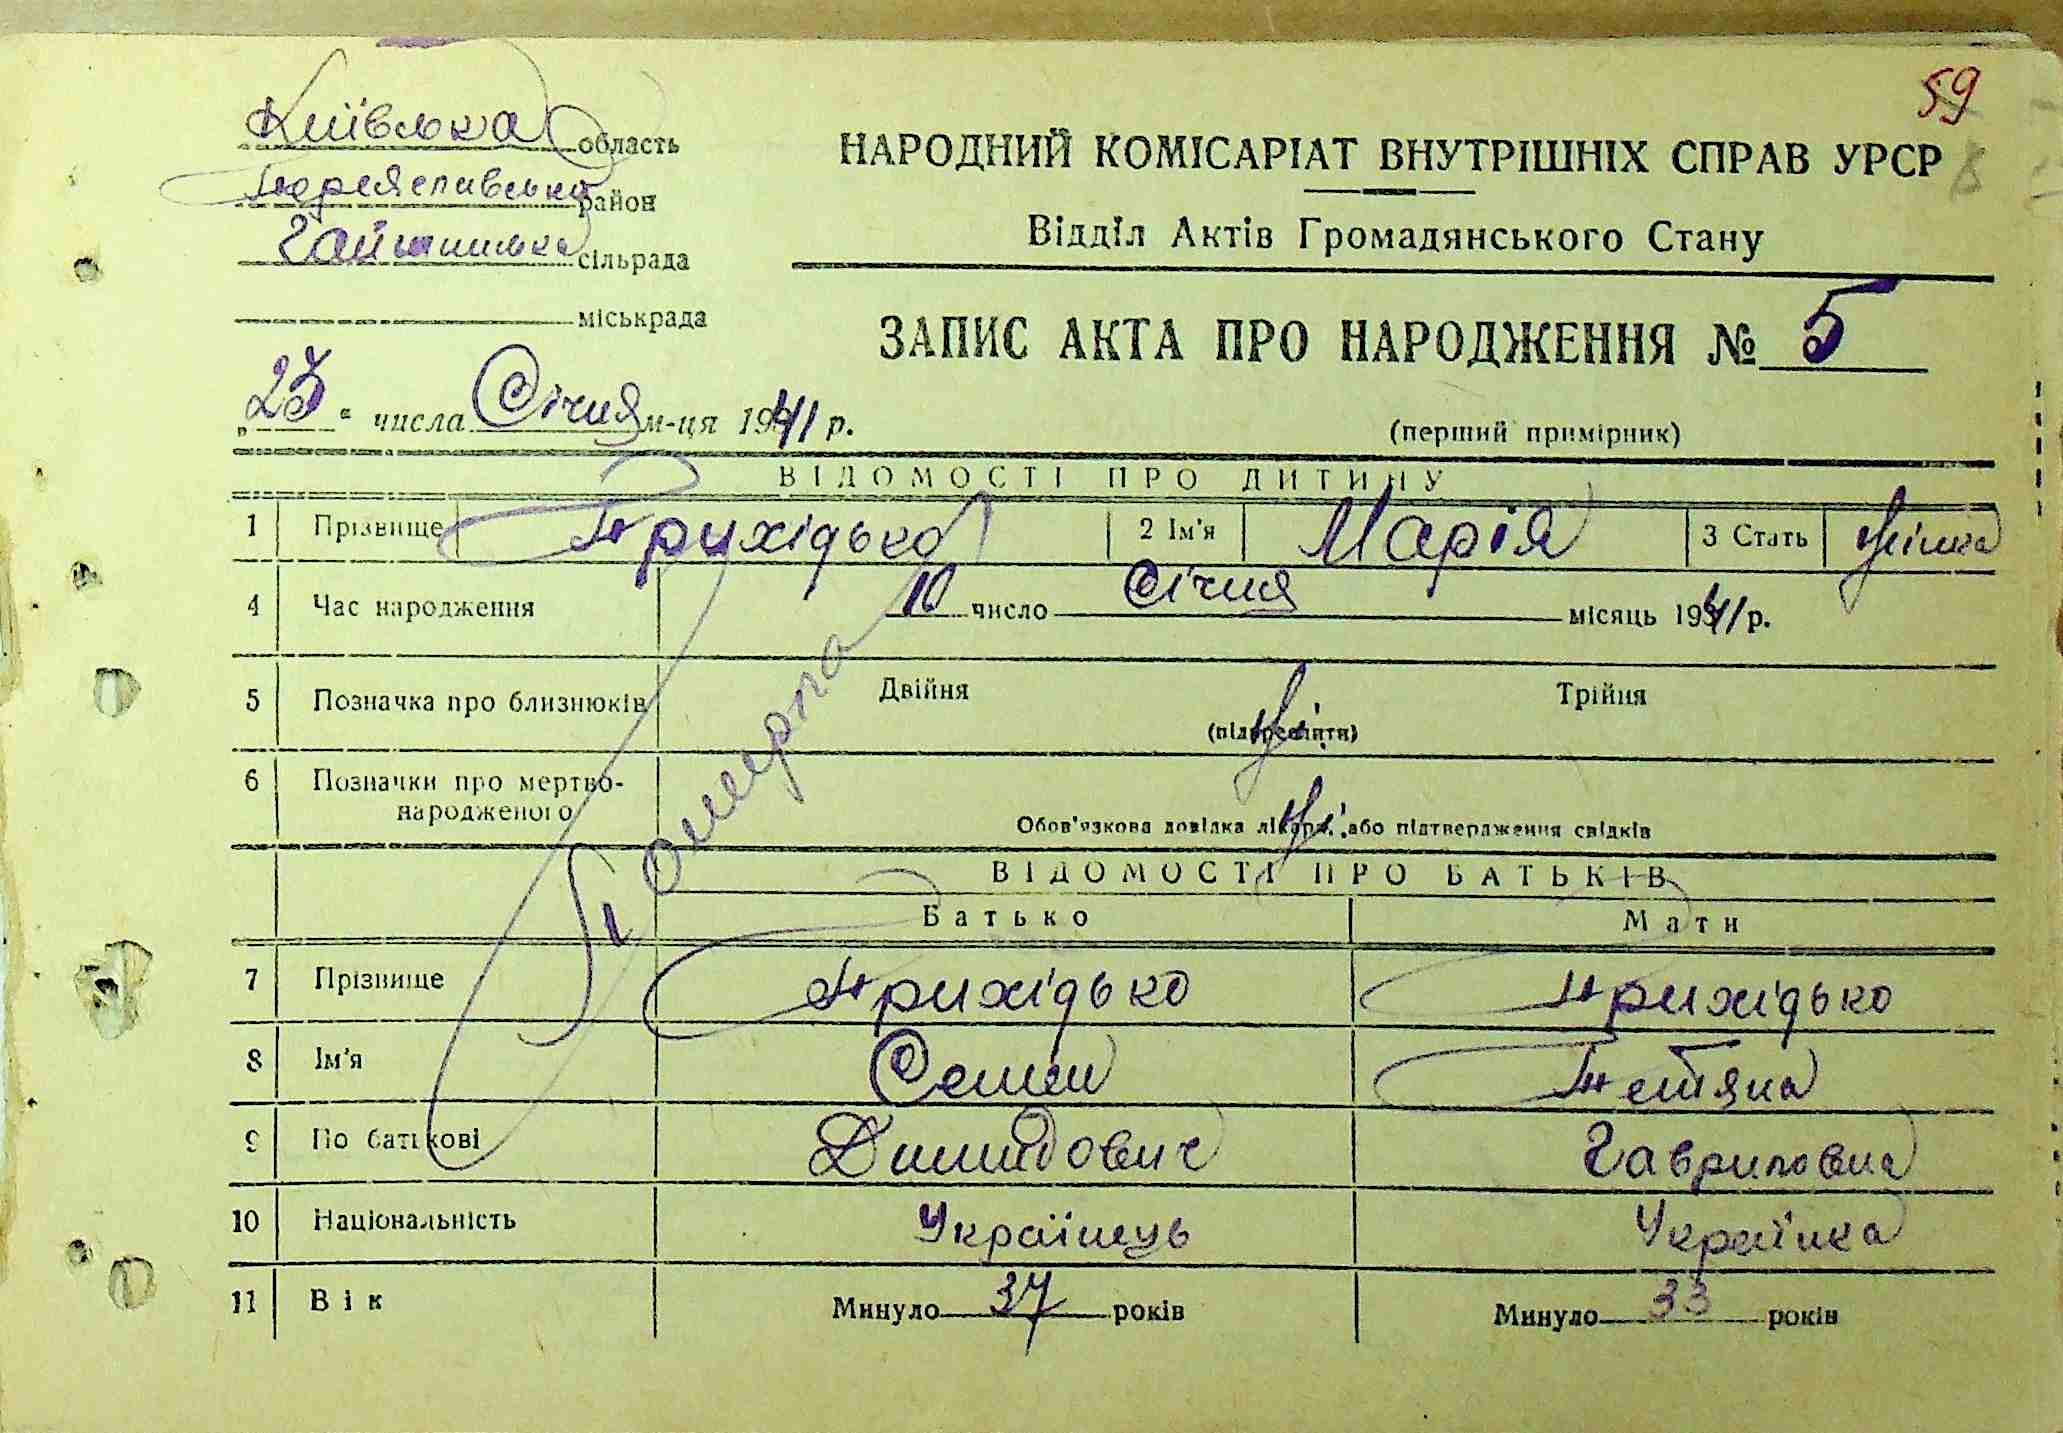 59
Київська область
Переяславський район
Гайшинська сільрада
міськрада
НАРОДНИЙ КОМІСАРІАТ ВНУТРІШНІХ СПРАВ УРСР
Відділ Актів Громадянського Стану
ЗАПИС АКТА ПРО НАРОДЖЕННЯ № 5
„25“ числа Січня м-ця 1941 р.
(перший примірник)
ВІДОМОСТІ ПРО ДИТИНУ
1 Прізвище Прихідько 2 Ім'я Марія 3 Стать жінка
4 Час народження 10 число Січня місяць 1941 р.
5 Позначка про близнюків Двійня Трійня
(підкреслити) Ні.
6 Позначки про мертво-
народженого
Обов'язкова довідка лікаря або підтвердження свідків Ні.
Померла
ВІДОМОСТІ ПРО БАТЬКІВ
Батько Мати
7 Прізвище Прихідько Прихідько
8 Ім'я Семен Тетяна
9 По батькові Демидович Гавриловна
10 Національність Українець Українка
11 Вік Минуло 37 років Минуло 33 років